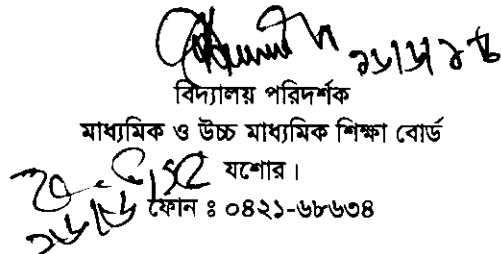 বিদ্যালয় পরিদর্শক
মাধ্যমিক ও উচ্চ মাধ্যমিক শিক্ষা বোর্ড
যশোর।
ফোন ঃ ০৪২১-৬৮৬৩৪